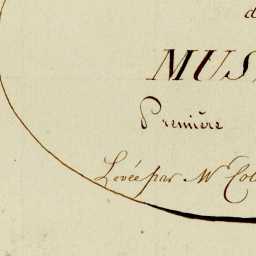 d
MUS
Première
Levée par Mr Col